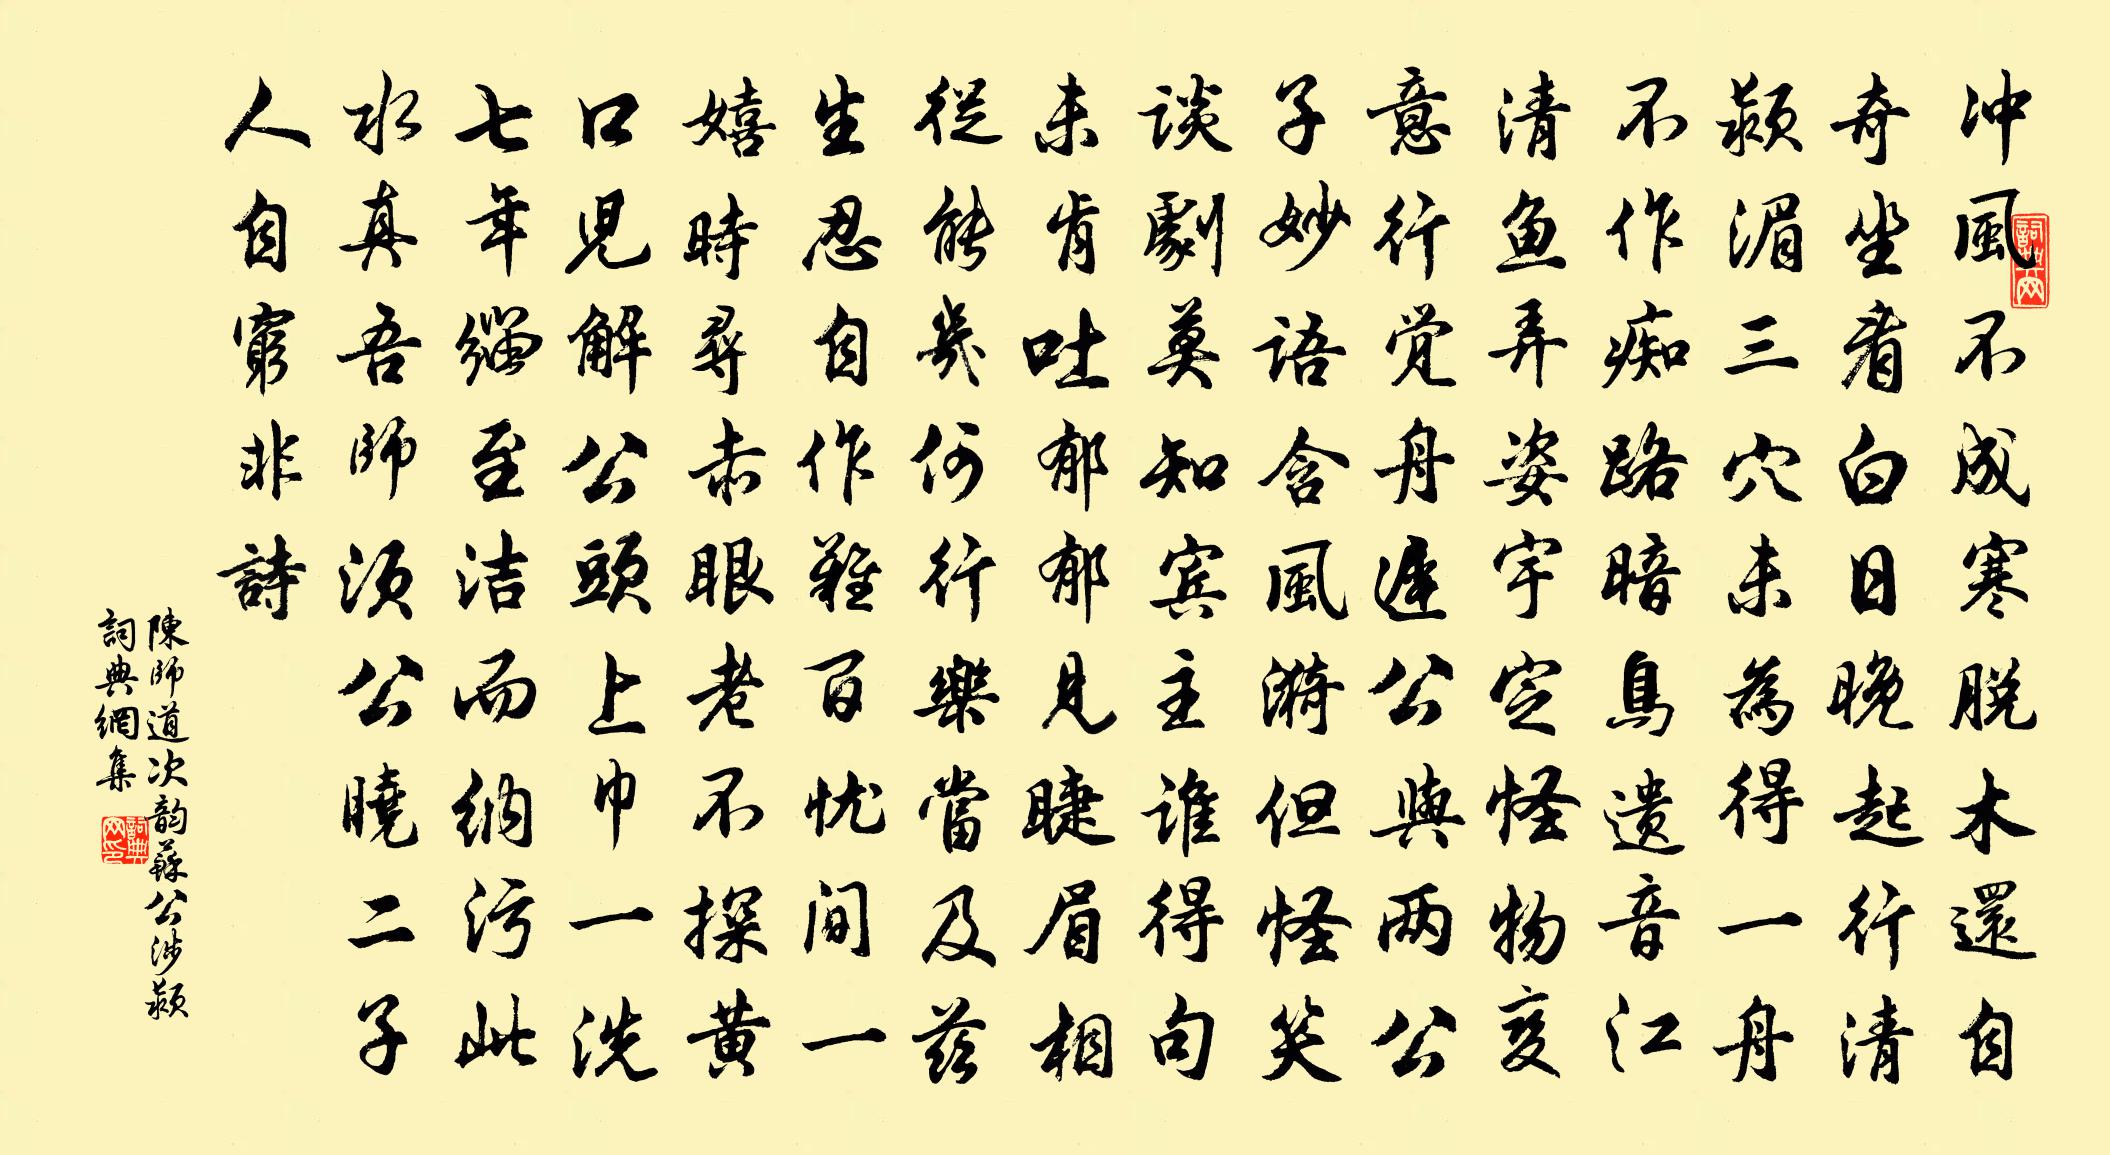 冲風不成寒脱木還自
奇坐看白日晚起行清
颍湄三穴未為得一舟
不作痴路暗鳥遗音江
清鱼弄姿宇定怪物変
意行觉舟遲公與两公
子妙語含風漪但怪笑
谈劇莫知宾主谁得句
未肯吐郁郁見睫眉相
從能幾何行樂當及茲
生忍自作難百忧间一
嬉時尋赤眼老不探黄
口兒解公頭上巾一洗
七年缁至洁而纳污此
水真吾師须公曉二子
人自窮非詩
陳師道次韵蘇公涉颍
詞典網集
詞典网
詞典网印